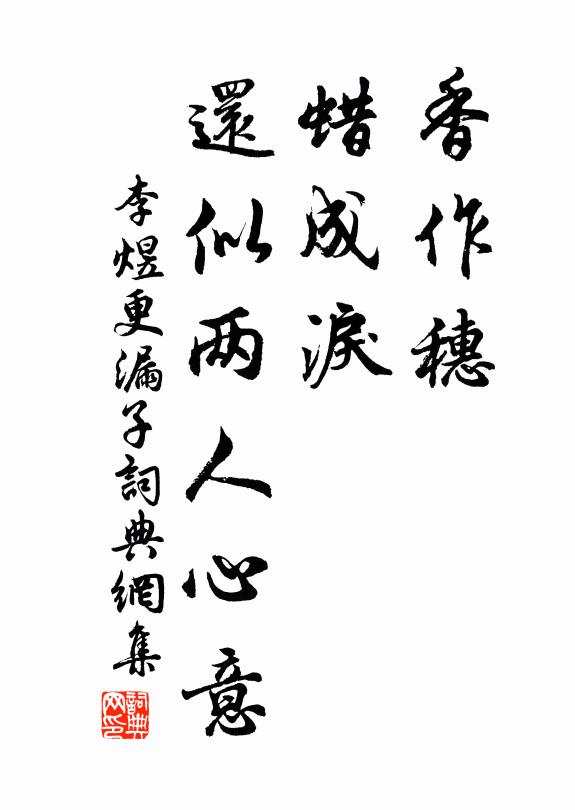 香作穗
蜡成淚
還似两人心意
李煜更漏子詞典網集
詞典网印